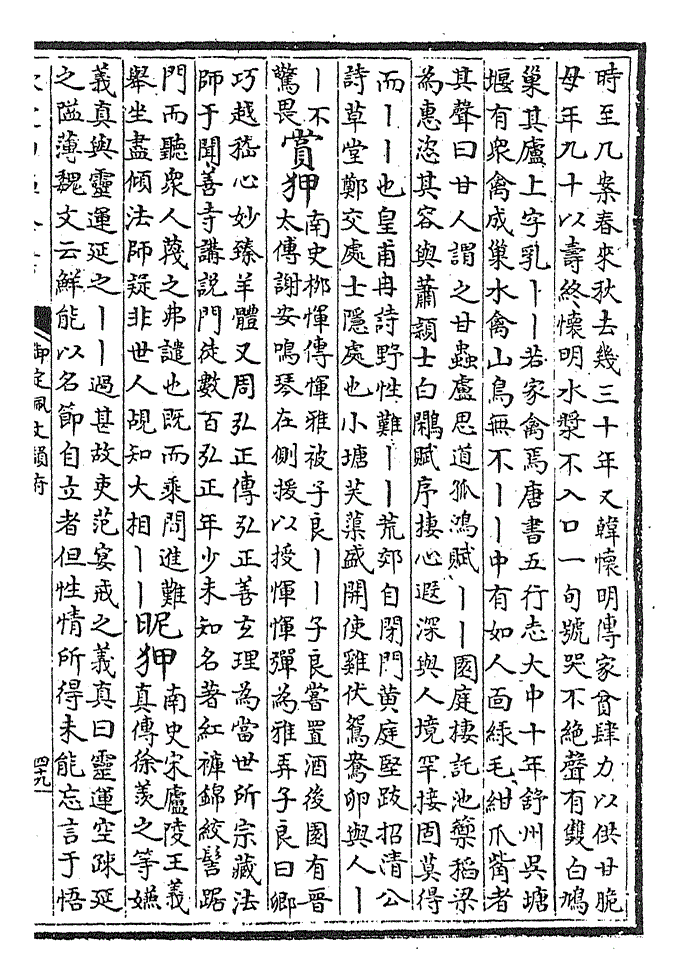 時至几案春來秋去幾三十年又韓懷明傳家貧肆力以供甘脆
母年九十以壽終懷明水漿不入口一旬號哭不絕聲有雙白鳩
巢其廬上字乳丨丨若家禽焉唐書五行志大中十年舒州吳塘
堰有衆禽成巢水禽山鳥無不丨丨中有如人面緑毛紺爪觜者
其聲曰甘人謂之甘蟲盧思道孤鴻賦丨丨園庭棲託池籞稻梁
為惠恣其容與蕭穎士白鷴賦序棲心遐深與人境罕接固莫得
而丨丨也皇甫冉詩野性難丨丨荒郊自閉門黄庭堅跋招清公
詩草堂鄭交處士隱處也小塘芙蕖盛開使雞伏鴛鴦卵與人丨
丨不
驚畏
賞狎
南史栁惲傳惲雅被子良丨丨子良嘗置酒後園有晉
太傳謝安鳴琴在側援以授惲惲彈為雅弄子良曰卿
巧越嵇心妙臻羊體又周弘正傳弘正善玄理為當世所宗藏法
師于聞善寺講説門徒數百弘正年少未知名著紅褌錦絞髻踞
門而聽衆人蔑之弗譴也既而乘間進難
舉坐盡傾法師疑非世人覘知大相丨丨
昵狎
南史宋廬陵王義
真傳徐羨之等嫌
義真與靈運延之丨丨過甚故吏范宴戒之義真曰靈運空疎延
之隘薄魏文云鮮能以名節自立者但性情所得未能忘言于悟
御定佩文韻府
四十九